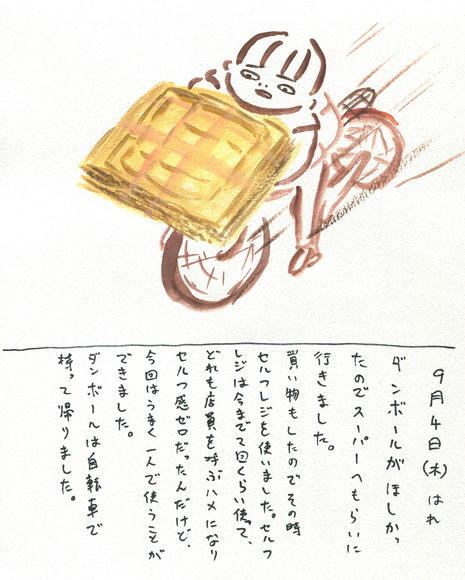 9月4日(木)はれ
ダンボールがほしかっ
たのでスーパーへもらいに
行きました。
買い物もしたのでその時
セルフレジを使いました。セルフ
レジは今まで7回くらい使って、
どれも店員を呼ぶハメになり
セルフ感ゼロだったんだけど、
今回はうまく一人で使うことが
できました。
ダンボールは自転車で
持って帰りました。